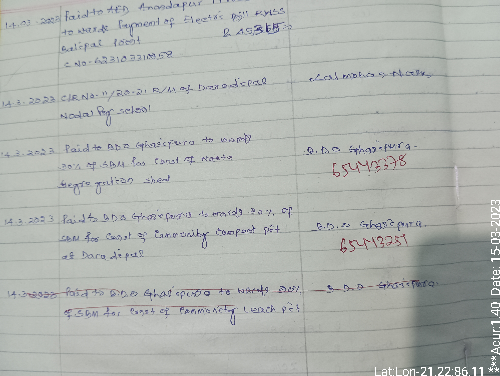 14.03.2023 Paid to AED Anandapur
towards Payment of Electric Bill RWSS
Balipal Point
C No-623103310858
14.3.2023 C/R No-11/20-21 R/M of Daradipal
Nodal Pry School
14.3.2023 Paid to BDO Ghasipura towards
30% of SBM for Const of Waste
Segregation shed
B.D.O Ghasipura.
65443378
14.3.2023 Paid to BDO Ghasipura towards 30% of
SBM for Const of Community Compost pit
at Daradipal
B.D.O Ghasipura.
14.3.2023 Paid to BDO Ghasipura towards 30%
of SBM for Const of Community Leach pit
B.D.O Ghasipura.
Lat Lon-21.22:86.11 ***Acur:1.40 Date: 15-03-2023